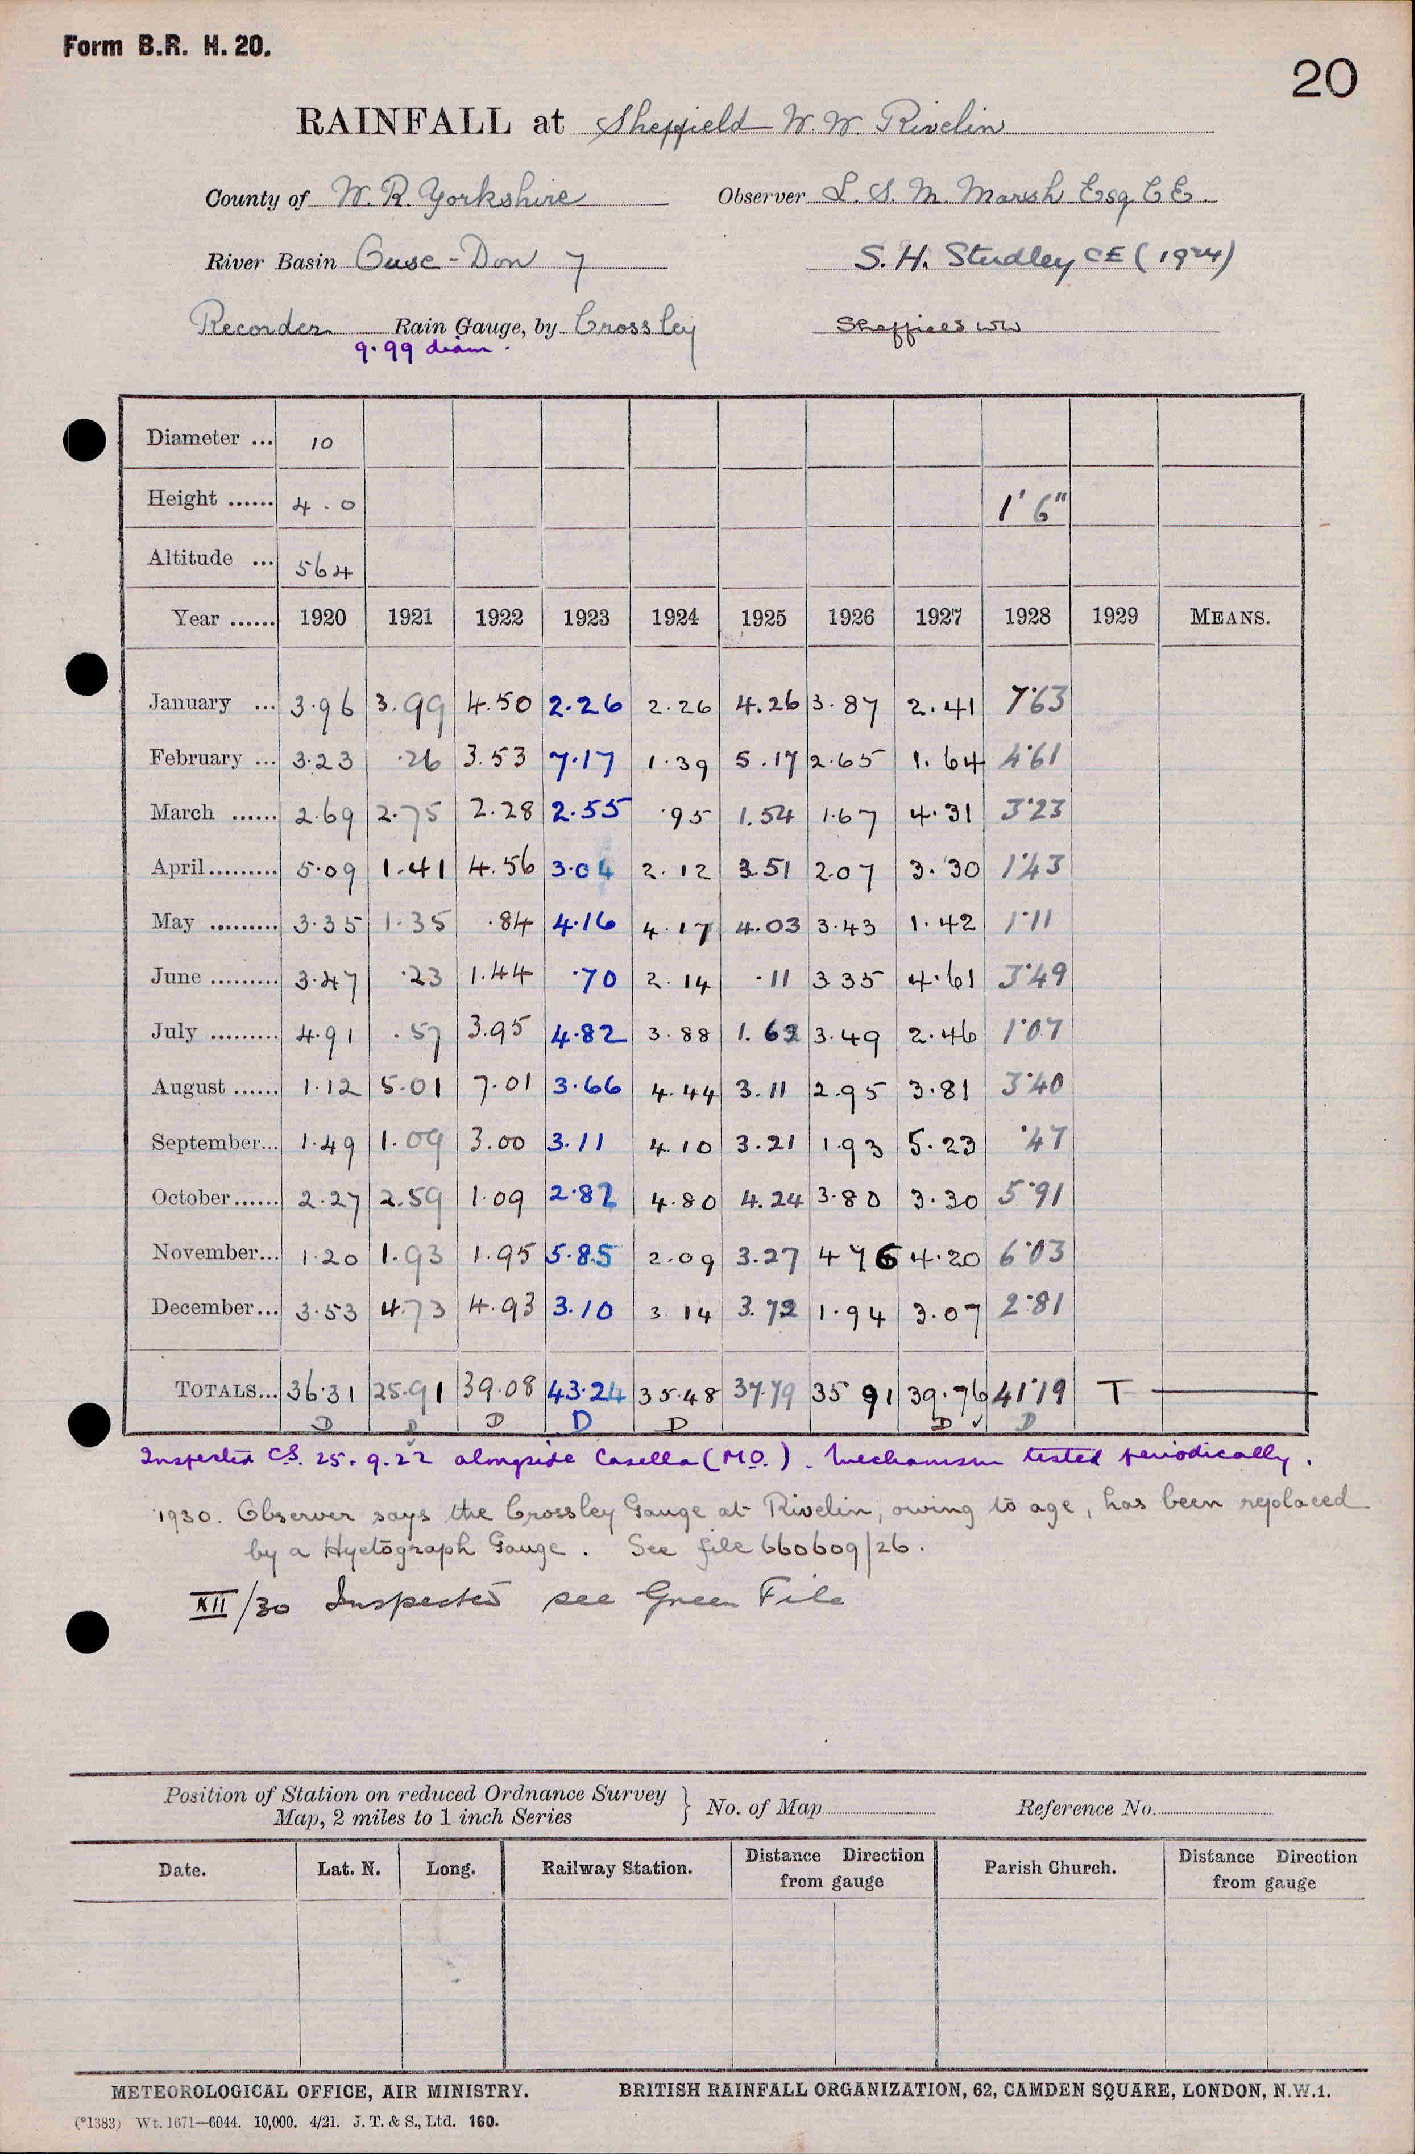 Form B.R. H. 20.
20
RAINFALL at Sheffield W. W. Rivelin
County of W. R. Yorkshire Observer L. S. M. Marsh Esq. C E.
River Basin Ouse - Don 7 S. H. Studley CE (1924)
Recorder Rain Gauge, by Crossley Sheffield WW
9.99 diam.
Diameter ... 10
Height ...... 4.0 1' 6"
Altitude ... 564
Year ...... 1920 1921 1922 1923 1924 1925 1926 1927 1928 1929 MEANS.
January ... 3.96 3.99 4.50 2.26 2.26 4.26 3.87 2.41 7.63
February ... 3.23 .26 3.53 7.17 1.39 5.17 2.65 1.64 4.61
March ...... 2.69 2.75 2.28 2.55 .95 1.54 1.67 4.31 3.23
April......... 5.09 1.41 4.56 3.04 2.12 3.51 2.07 3.30 1.43
May ......... 3.35 1.35 .84 4.16 4.17 4.03 3.43 1.42 1.11
June ......... 3.47 .23 1.44 .70 2.14 .11 3 35 4.61 3.49
July ......... 4.91 .57 3.95 4.82 3.88 1.62 3.49 2.46 1.07
August ...... 1.12 5.01 7.01 3.66 4.44 3.11 2.95 3.81 3.40
September... 1.49 1.09 3.00 3.11 4.10 3.21 1.93 5.23 .47
October...... 2.27 2.59 1.09 2.82 4.80 4.24 3.80 3.30 5.91
November... 1.20 1.93 1.95 5.85 2.09 3.27 4 76 4.20 6.03
December... 3.53 4.73 4.93 3.10 3.14 3.72 1.94 3.07 2.81
TOTALS... 36.31 25.91 39.08 43.24 35.48 37.79 35 91 39.76 41.19 T
D D D D D D ✓ D
Inspected C.S. 25.9.22 alongside Casella (M.O.). Mechanism tested periodically.
1930. Observer says the Crossley Gauge at Rivelin, owing to age, has been replaced
by a Hyetograph Gauge. See file 660609/26.
XII/30 Inspected see Green File
Position of Station on reduced Ordnance Survey Map, 2 miles to 1 inch Series } No. of Map Reference No.
Date. Lat. N. Long. Railway Station. Distance Direction from gauge Parish Church. Distance Direction from gauge
METEOROLOGICAL OFFICE, AIR MINISTRY. BRITISH RAINFALL ORGANIZATION, 62, CAMDEN SQUARE, LONDON, N.W.1.
(*1383) Wt. 1671—6044. 10,000. 4/21. J. T. & S., Ltd. 160.